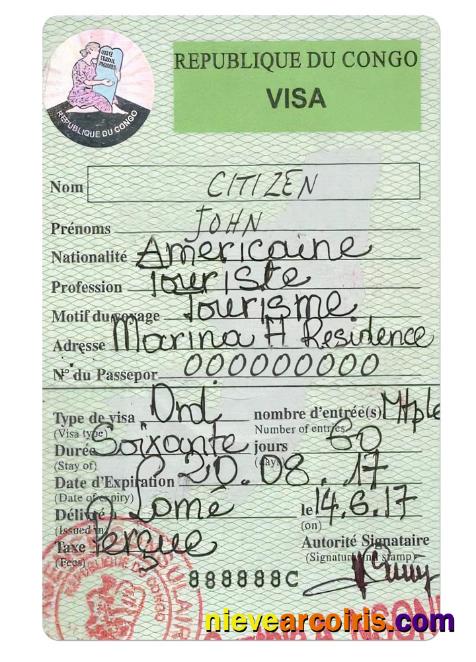 REPUBLIQUE DU CONGO
VISA
UNITÉ TRAVAIL PROGRÈS
REPUBLIQUE DU CONGO
Nom CITIZEN
Prénoms JOHN
Nationalité Américaine
Profession Touriste
Motif du voyage Tourisme
Adresse Marina H Residence
N° du Passepor 000000000
Type de visa Ord nombre d'entrée(s) Mtple
(Visa type) Number of entries
Durée Soixante jours 60
(Stay of) (days)
Date d'Expiration 20.08.17
(Date of expiry)
Délivré à Lomé le 14.6.17
(Issued in) (on)
Taxe Perçue Autorité Signataire
(Fees) (Signature and stamp)
888888C
REPUBLIQUE DU CONGO
nievearcoiris.com